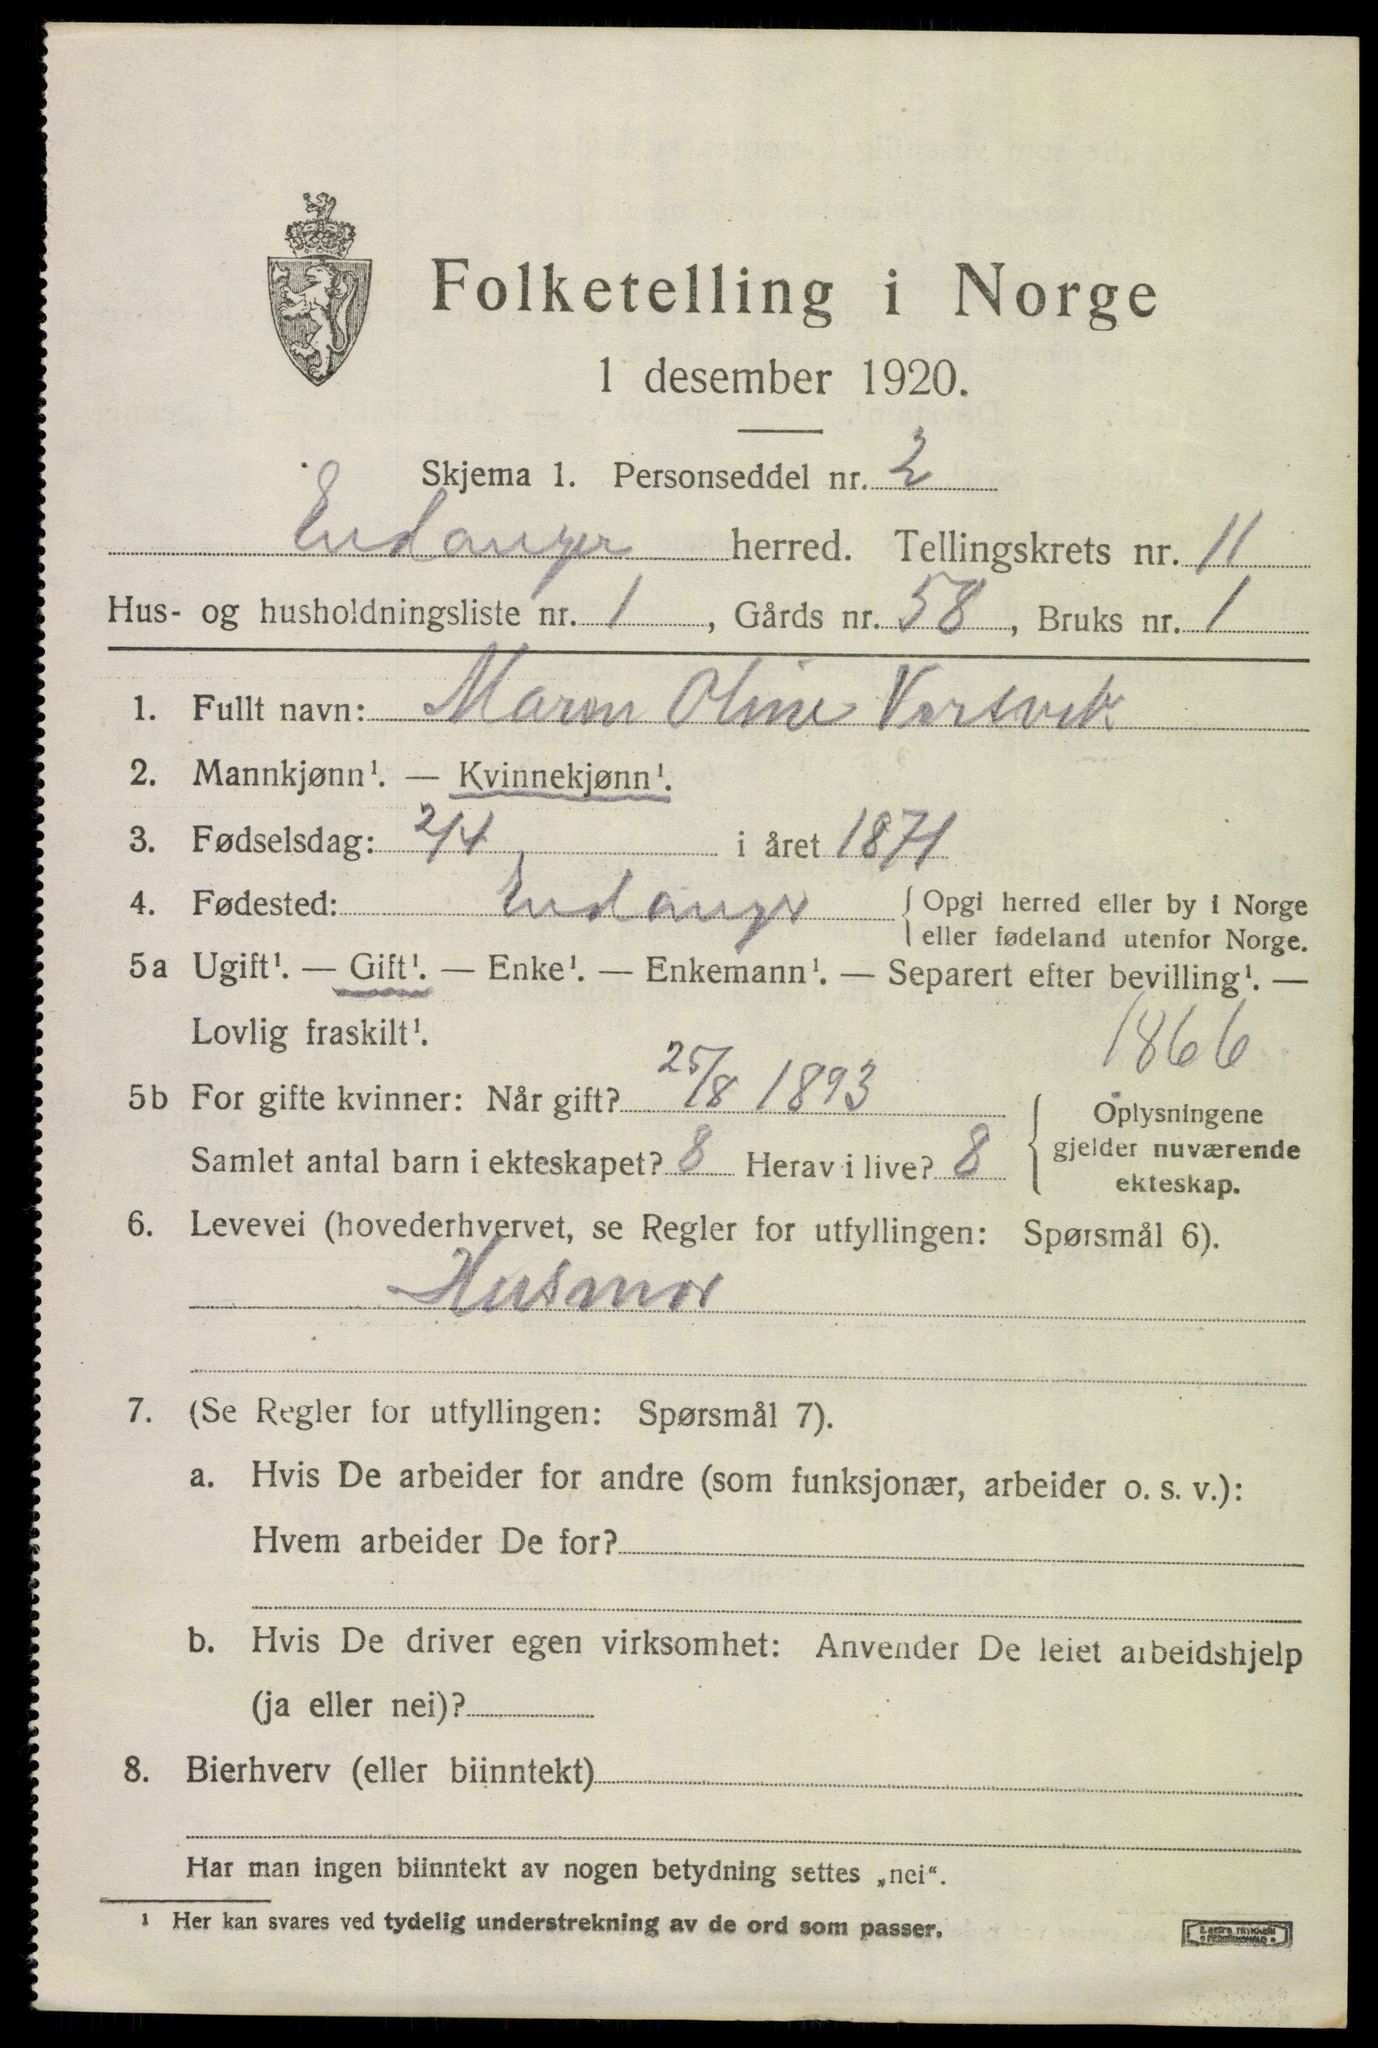 Folketelling i Norge
1 desember 1920.
Skjema 1. Personseddel nr. 2
Endanger herred. Tellingskrets nr. 11
Hus- og husholdningsliste nr. 1, Gårds nr. 58, Bruks nr. 1
1. Fullt navn: Maren Oline Vartvik
2. Mannkjønn¹. — Kvinnekjønn¹.
3. Fødselsdag: 2/4 i året 1871
4. Fødested: Endanger { Opgi herred eller by i Norge
eller fødeland utenfor Norge.
5a Ugift¹. — Gift¹. — Enke¹. — Enkemann¹. — Separert efter bevilling¹. —
Lovlig fraskilt¹.
1866
5b For gifte kvinner: Når gift? 25/8 1893
Samlet antal barn i ekteskapet? 8 Herav i live? 8
Oplysningene
gjelder nuværende
ekteskap.
6. Levevei (hovederhvervet, se Regler for utfyllingen: Spørsmål 6).
Husmor
7. (Se Regler for utfyllingen: Spørsmål 7).
a. Hvis De arbeider for andre (som funksjonær, arbeider o. s. v.):
Hvem arbeider De for?
b. Hvis De driver egen virksomhet: Anvender De leiet arbeidshjelp
(ja eller nei)?
8. Bierhverv (eller biinntekt)
Har man ingen biinntekt av nogen betydning settes „nei“.
¹ Her kan svares ved tydelig understrekning av de ord som passer.